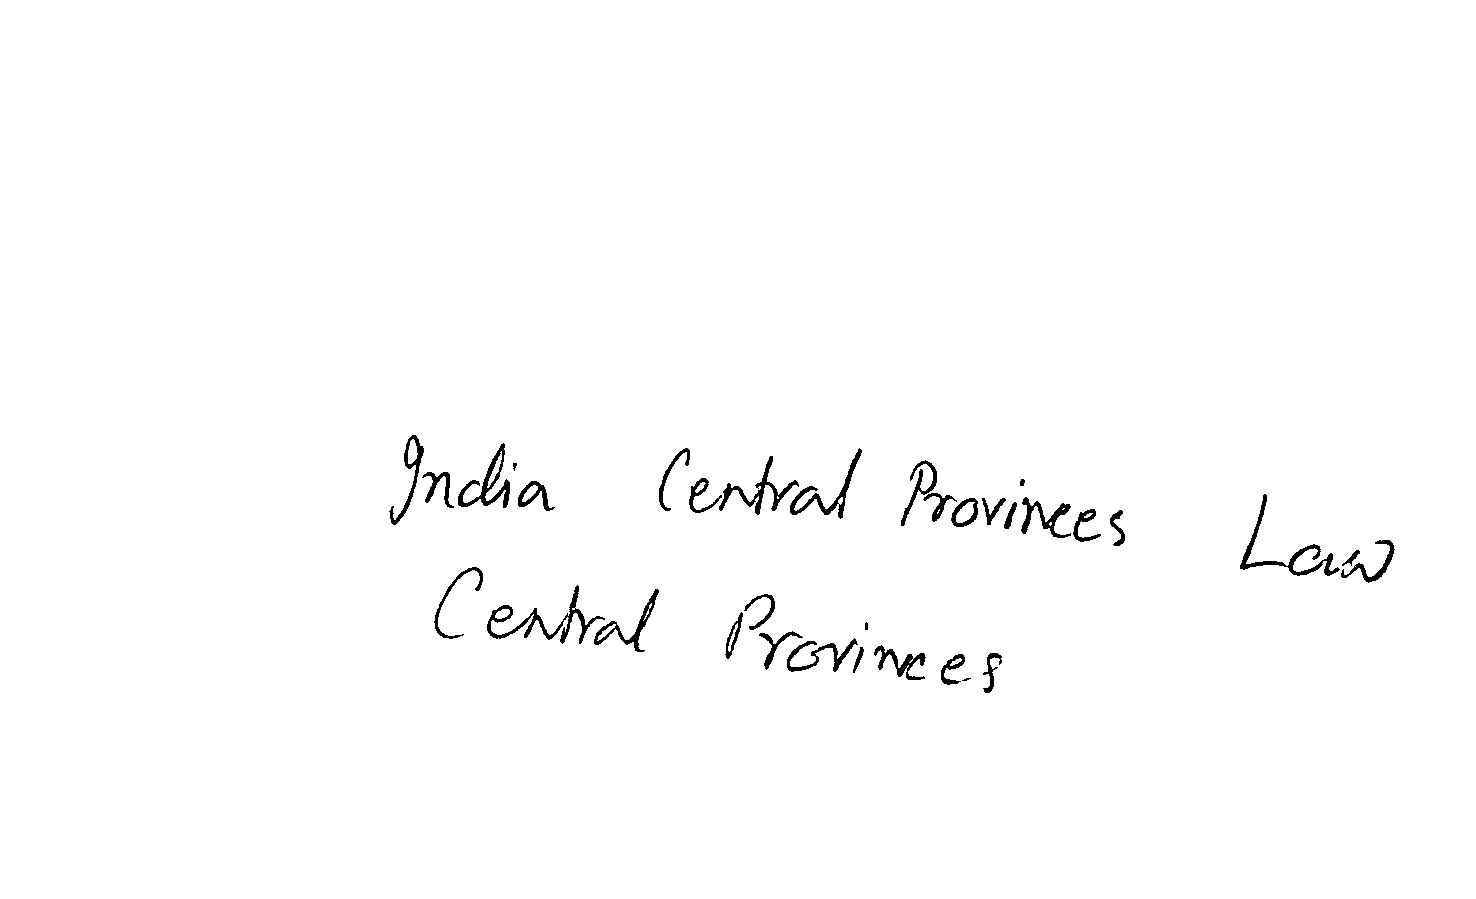 India Central Provinces Law
Central Provinces